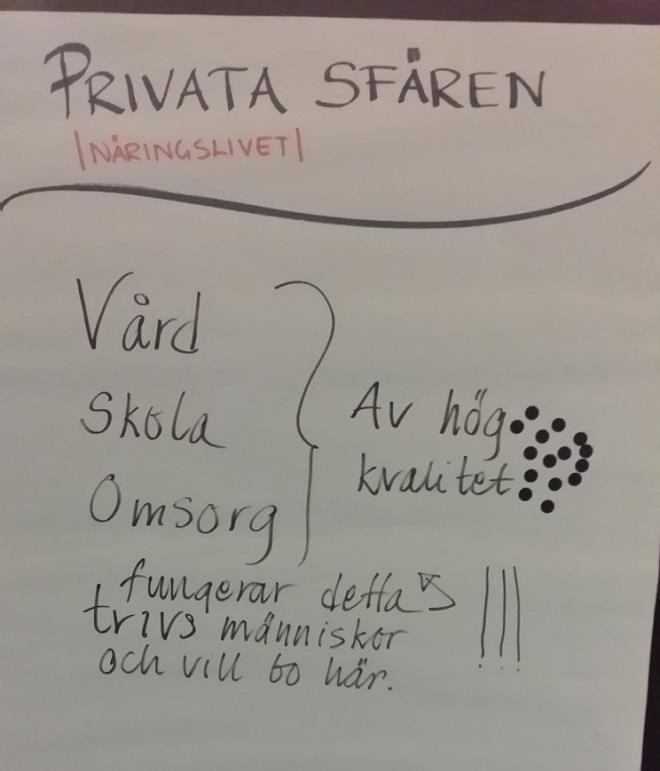 PRIVATA SFÄREN
|NÄRINGSLIVET|
Vård
Skola
Omsorg
Av hög
kvalitet
fungerar detta
trivs människor
och vill bo här.
!!!